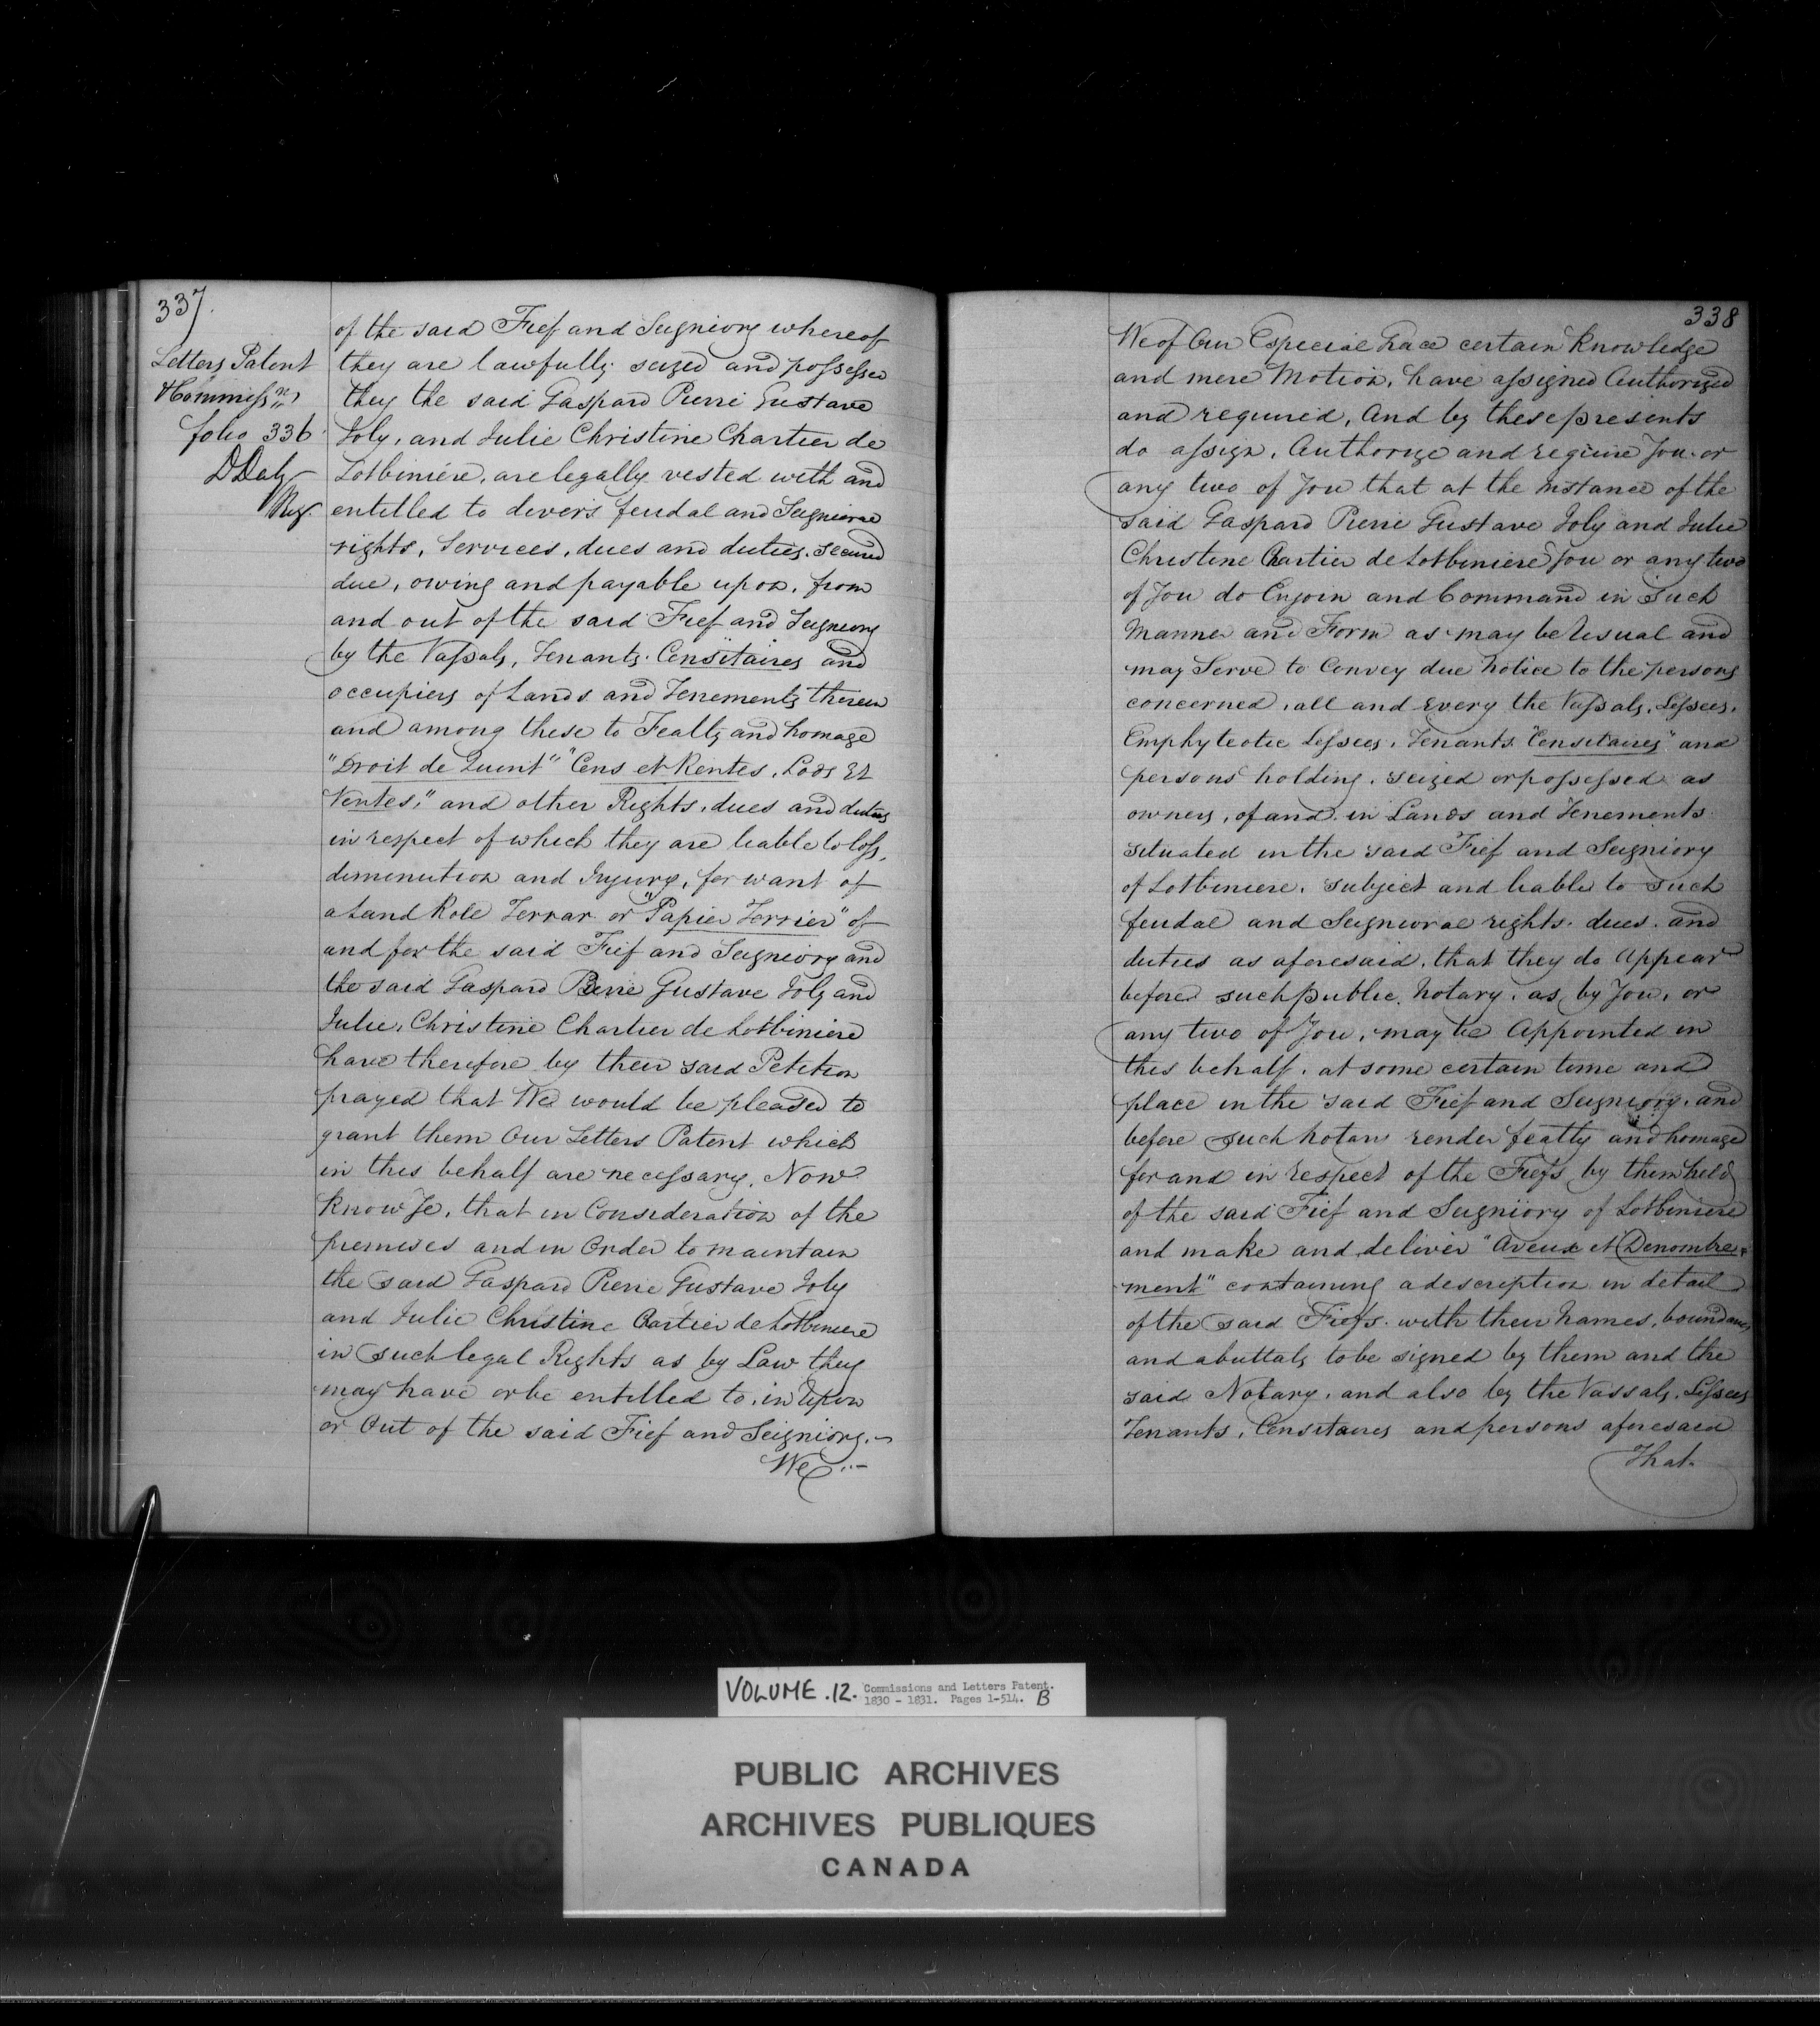 337.
Letters Patent
& Commissns
folio 336
D Daly
Reg.
of the said Fief and Seigniory whereof
they are lawfully seized and possessed
they the said Gaspard Pierre Gustave
Joly, and Julie Christine Chartier de
Lotbiniére, are legally vested with and
entitled to divers feudal and Seigniorae
rights, Services, dues and duties, secured
due, owing and payable upon, from
and out of the said Fief and Seigniory
by the Vassals, Tenants, Censitaires and
occupiers of Lands and Tenements therein
and among these to Fealty and homage
"Droit de Quint" "Cens et Rentes, Lods Et
Ventes," and other Rights, dues and duties
in respect of which they are liable to loss,
diminution and Injury, for want of
a Land Role Terrar or "Papier Terrier" of
and for the said Fief and Seigniory and
the said Gaspard Pierre Gustave Joly and
Julie, Christine Chartier de Lotbiniere
have therefore by their said Petition
prayed that We would be pleased to
grant them Our Letters Patent which
in this behalf are necessary. Now
Know Ye, that in Consideration of the
premises and in Order to maintain
the said Gaspard Pierre Gustave Joly
and Julie Christine Chartier de Lotbiniere
in such legal Rights as by Law they
may have or be entitled to, in Upon
or Out of the said Fief and Seigniory.
We
338
We of Our Especial Grace certain Knowledge
and mere Motion, have assigned Authorized
and required, And by these presents
do assign, Authorize and require You or
any two of You that at the Instance of the
said Gaspard Pierre Gustave Joly and Julie
Christine Chartier de Lotbiniere You or any two
of You do Enjoin and Command in Such
Manner and Form as may be Usual and
may Serve to Convey due Notice to the persons
concerned, all and Every the Vassals, Lessees,
Emphyteotic Lessees, Tenants "Censitaires" and
persons holding, seized or possessed as
owners, of and in Lands and Tenements
situated in the said Fief and Seigniory
of Lotbiniere, subject and liable to such
feudal and Seignioral rights, dues, and
duties as aforesaid, that they do Appear
before such public Notary, as by You, or
any two of You, may be Appointed in
this behalf, at some certain time and
place in the said Fief and Seigniory, and
before such Notary render fealty and homage
for and in respect of the Fiefs by them held
of the said Fief and Seigniory of Lotbiniere
and make and deliver "Aveux et Denombre-
ment" containing a description in detail
of the said Fiefs with their Names, boundaries
and abuttals to be signed by them and the
said Notary, and also by the Vassals, Lessees
Tenants, Censitaires and persons aforesaid
That
VOLUME .12. Commissions and Letters Patent.
1830 - 1831. Pages 1-514. B
PUBLIC ARCHIVES
ARCHIVES PUBLIQUES
CANADA